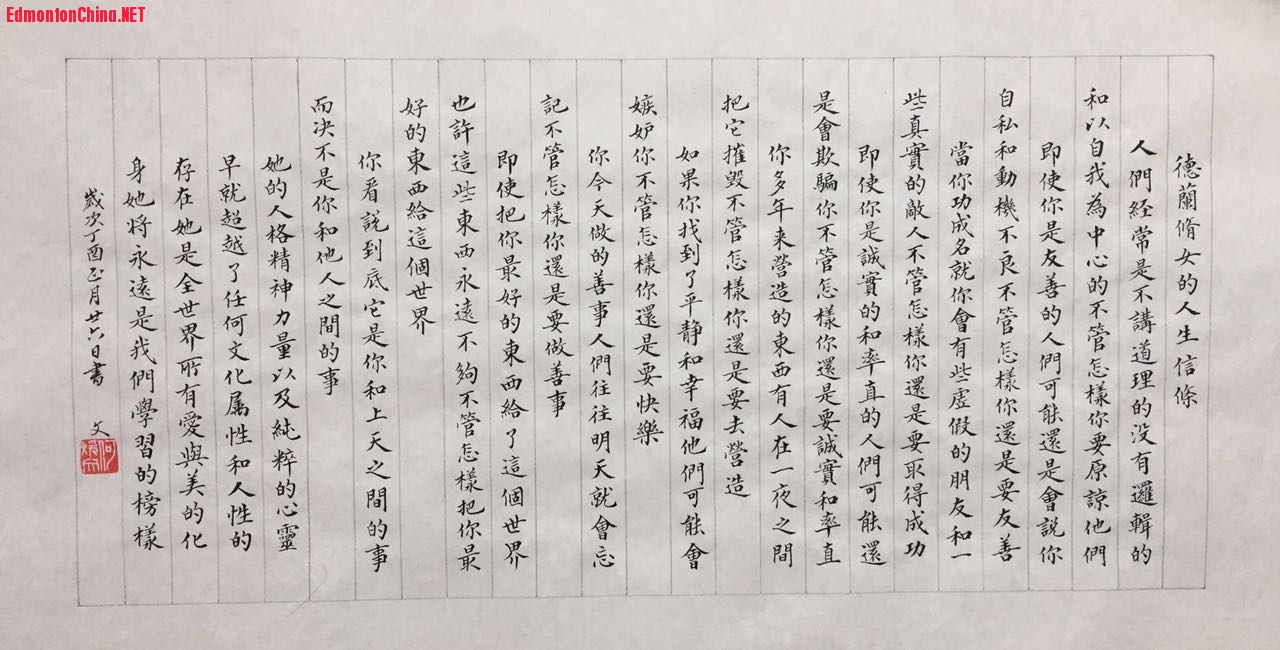 EdmontonChina.NET
德蘭脩女的人生信條
人們經常是不講道理的没有邏輯的
和以自我為中心的不管怎樣你要原諒他們
即使你是友善的人們可能還是會説你
自私和動機不良不管怎樣你還是要友善
當你功成名就你會有些虚假的朋友和一
些真實的敵人不管怎樣你還是要取得成功
即使你是誠實的和率直的人們可能還
是會欺騙你不管怎樣你還是要誠實和率直
你多年来營造的東西有人在一夜之間
把它摧毀不管怎樣你還是要去營造
如果你找到了平静和幸福他們可能會
嫉妒你不管怎樣你還是要快樂
你今天做的善事人們往往明天就會忘
記不管怎樣你還是要做善事
即使把你最好的東西給了這個世界
也許這些東西永遠不夠不管怎樣把你最
好的東西給這個世界
你看説到底它是你和上天之間的事
而决不是你和他人之間的事
她的人格精神力量以及純粹的心靈
早就超越了任何文化属性和人性的
存在她是全世界所有愛與美的化
身她將永遠是我們學習的榜樣
歲次丁酉正月廿六日書 文